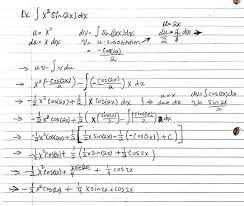 Ex: ∫ x² Sin(2x) dx
u = x² dv = ∫ sin(2x) dx u = 2x
du = x dx v = u-substitution du = 2 dx
= -cos(2x)/2
→ uv - ∫ v du
→ x² (-cos(2x)/2) - ∫ (-cos(2x)/2) x dx
→ -½ x² cos(2x) + ½ ∫ x cos(2x) dx u = x dv = ∫ cos2x dx
du = dx v = sin2x/2
→ -½ x² cos(2x) + ½ (x (sin2x/2) - ∫ sin(2x)/2 dx)
→ -½ x² cos(2x) + ½ [½ x sin2x - ½ (-cos(2x)) + C]
→ -½ x² cos(2x) + ½ (½ x sin2x + ½ cos2x)
→ -½ x² cos(2x) + x sin2x/4 + ¼ cos2x
→ -½ x² cos2x + ¼ x sin2x + cos2x